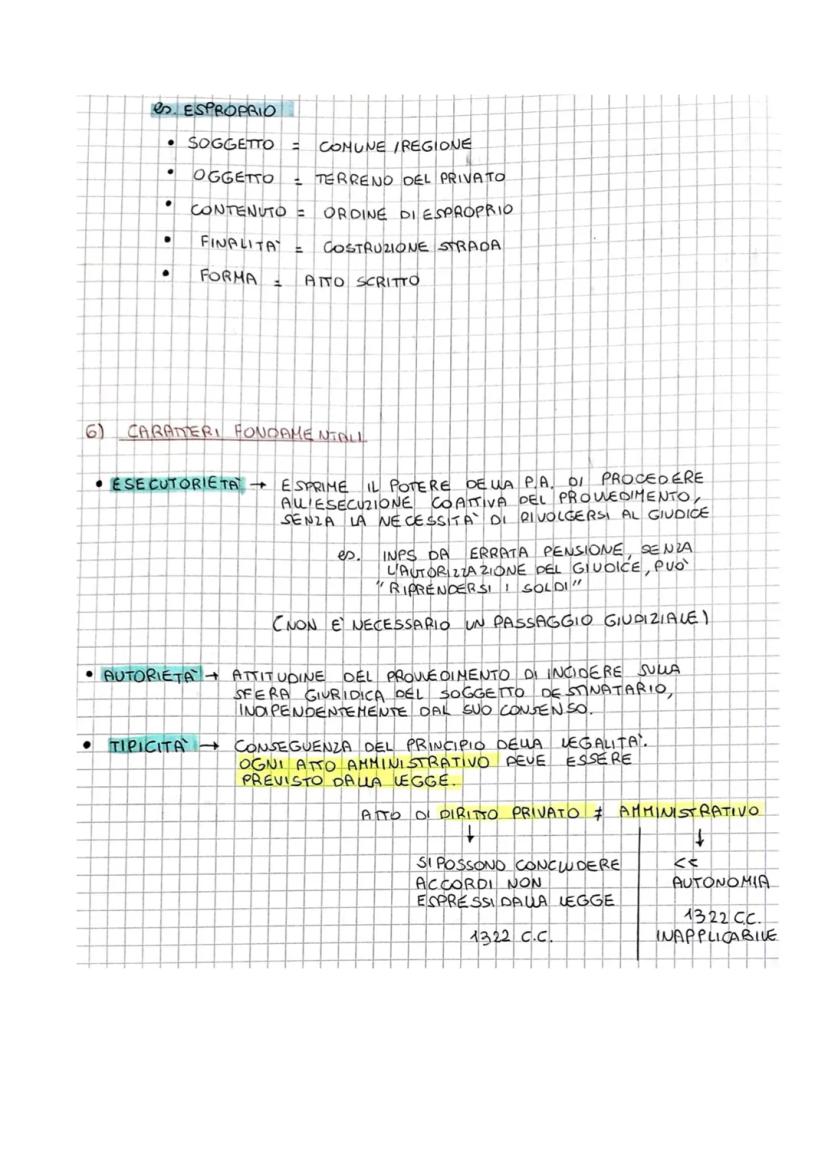 es. ESPROPRIO
• SOGGETTO = COMUNE / REGIONE
• OGGETTO = TERRENO DEL PRIVATO
• CONTENUTO = ORDINE DI ESPROPRIO
• FINALITA' = COSTRUZIONE STRADA
• FORMA = ATTO SCRITTO
6) CARATTERI FONDAMENTALI
• ESECUTORIETA' → ESPRIME IL POTERE DELLA P.A. DI PROCEDERE
ALL'ESECUZIONE COATTIVA DEL PROVVEDIMENTO,
SENZA LA NECESSITA' DI RIVOLGERSI AL GIUDICE
es. INPS DA ERRATA PENSIONE, SENZA
L'AUTORIZZAZIONE DEL GIUDICE, PUO'
"RIPRENDERSI I SOLDI"
(NON E' NECESSARIO UN PASSAGGIO GIUDIZIALE)
• AUTORIETA' → ATTITUDINE DEL PROVVEDIMENTO DI INCIDERE SULLA
SFERA GIURIDICA DEL SOGGETTO DESTINATARIO,
INDIPENDENTEMENTE DAL SUO CONSENSO.
• TIPICITA' → CONSEGUENZA DEL PRINCIPIO DELLA LEGALITA'.
OGNI ATTO AMMINISTRATIVO DEVE ESSERE
PREVISTO DALLA LEGGE.
ATTO DI DIRITTO PRIVATO ≠ AMMINISTRATIVO
↓ ↓
SI POSSONO CONCLUDERE
ACCORDI NON
ESPRESSI DALLA LEGGE
1322 C.C.
<<
AUTONOMIA
1322 C.C.
INAPPLICABILE